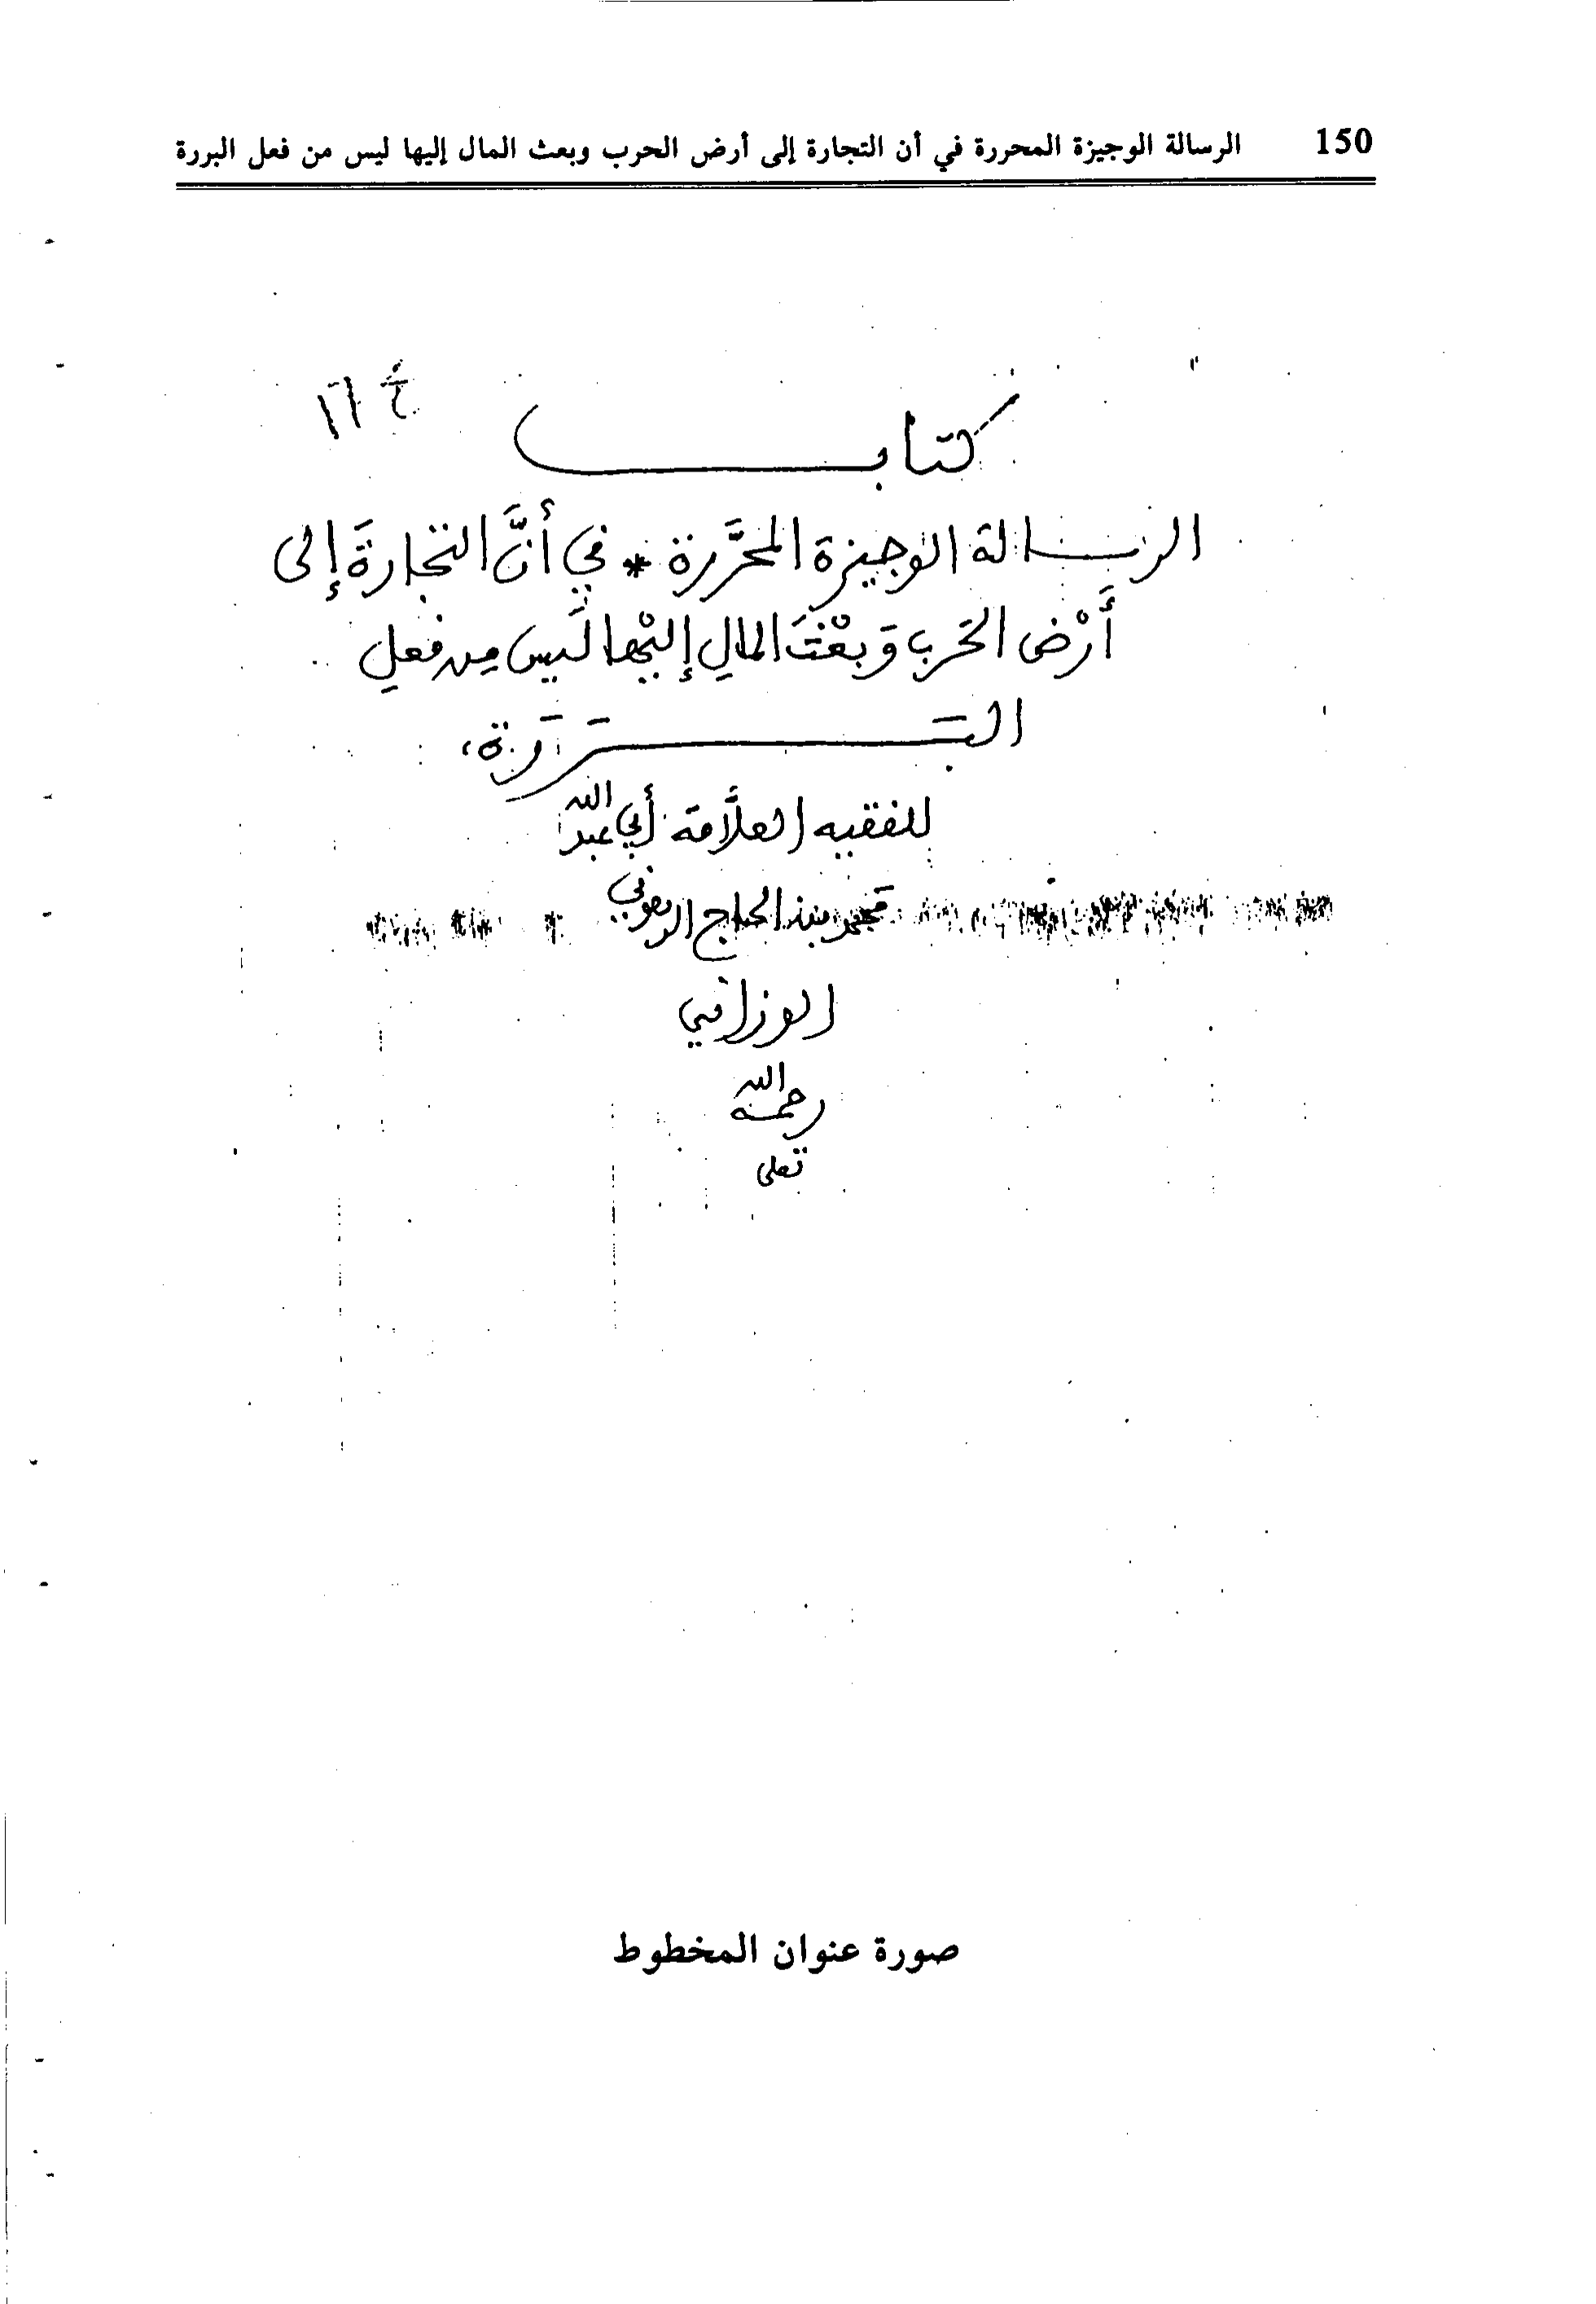 150 الرسالة الوجيزة المحررة في أن التجارة إلى أرض الحرب وبعث المال إليها ليس من فعل البررة
كتاب
الرسالة الوجيزة المحرَّرة * في أنَّ التجارةَ إلى
أَرْض الحَرب وَبعْثَ المالِ إليْها لَيس مِن فعلِ
البَرَرَة،
للفقيه العلَّامة أبي عبد الله
محمد بن الحاج الرهوني
الوزاني
رحمه الله
تعلى
صورة عنوان المخطوط